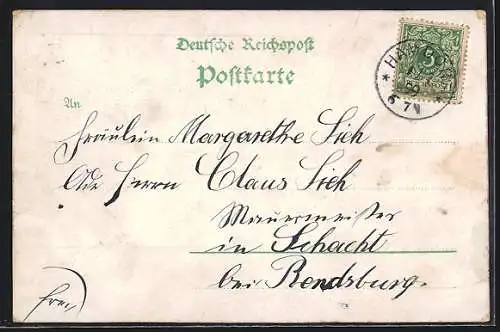 Deutsche Reichspost
Postkarte
An
Fräulein Margarethe Sieh
Adr Herrn Claus Sieh
Mauermeister
in Schacht
bei Rendsburg.
frei
5